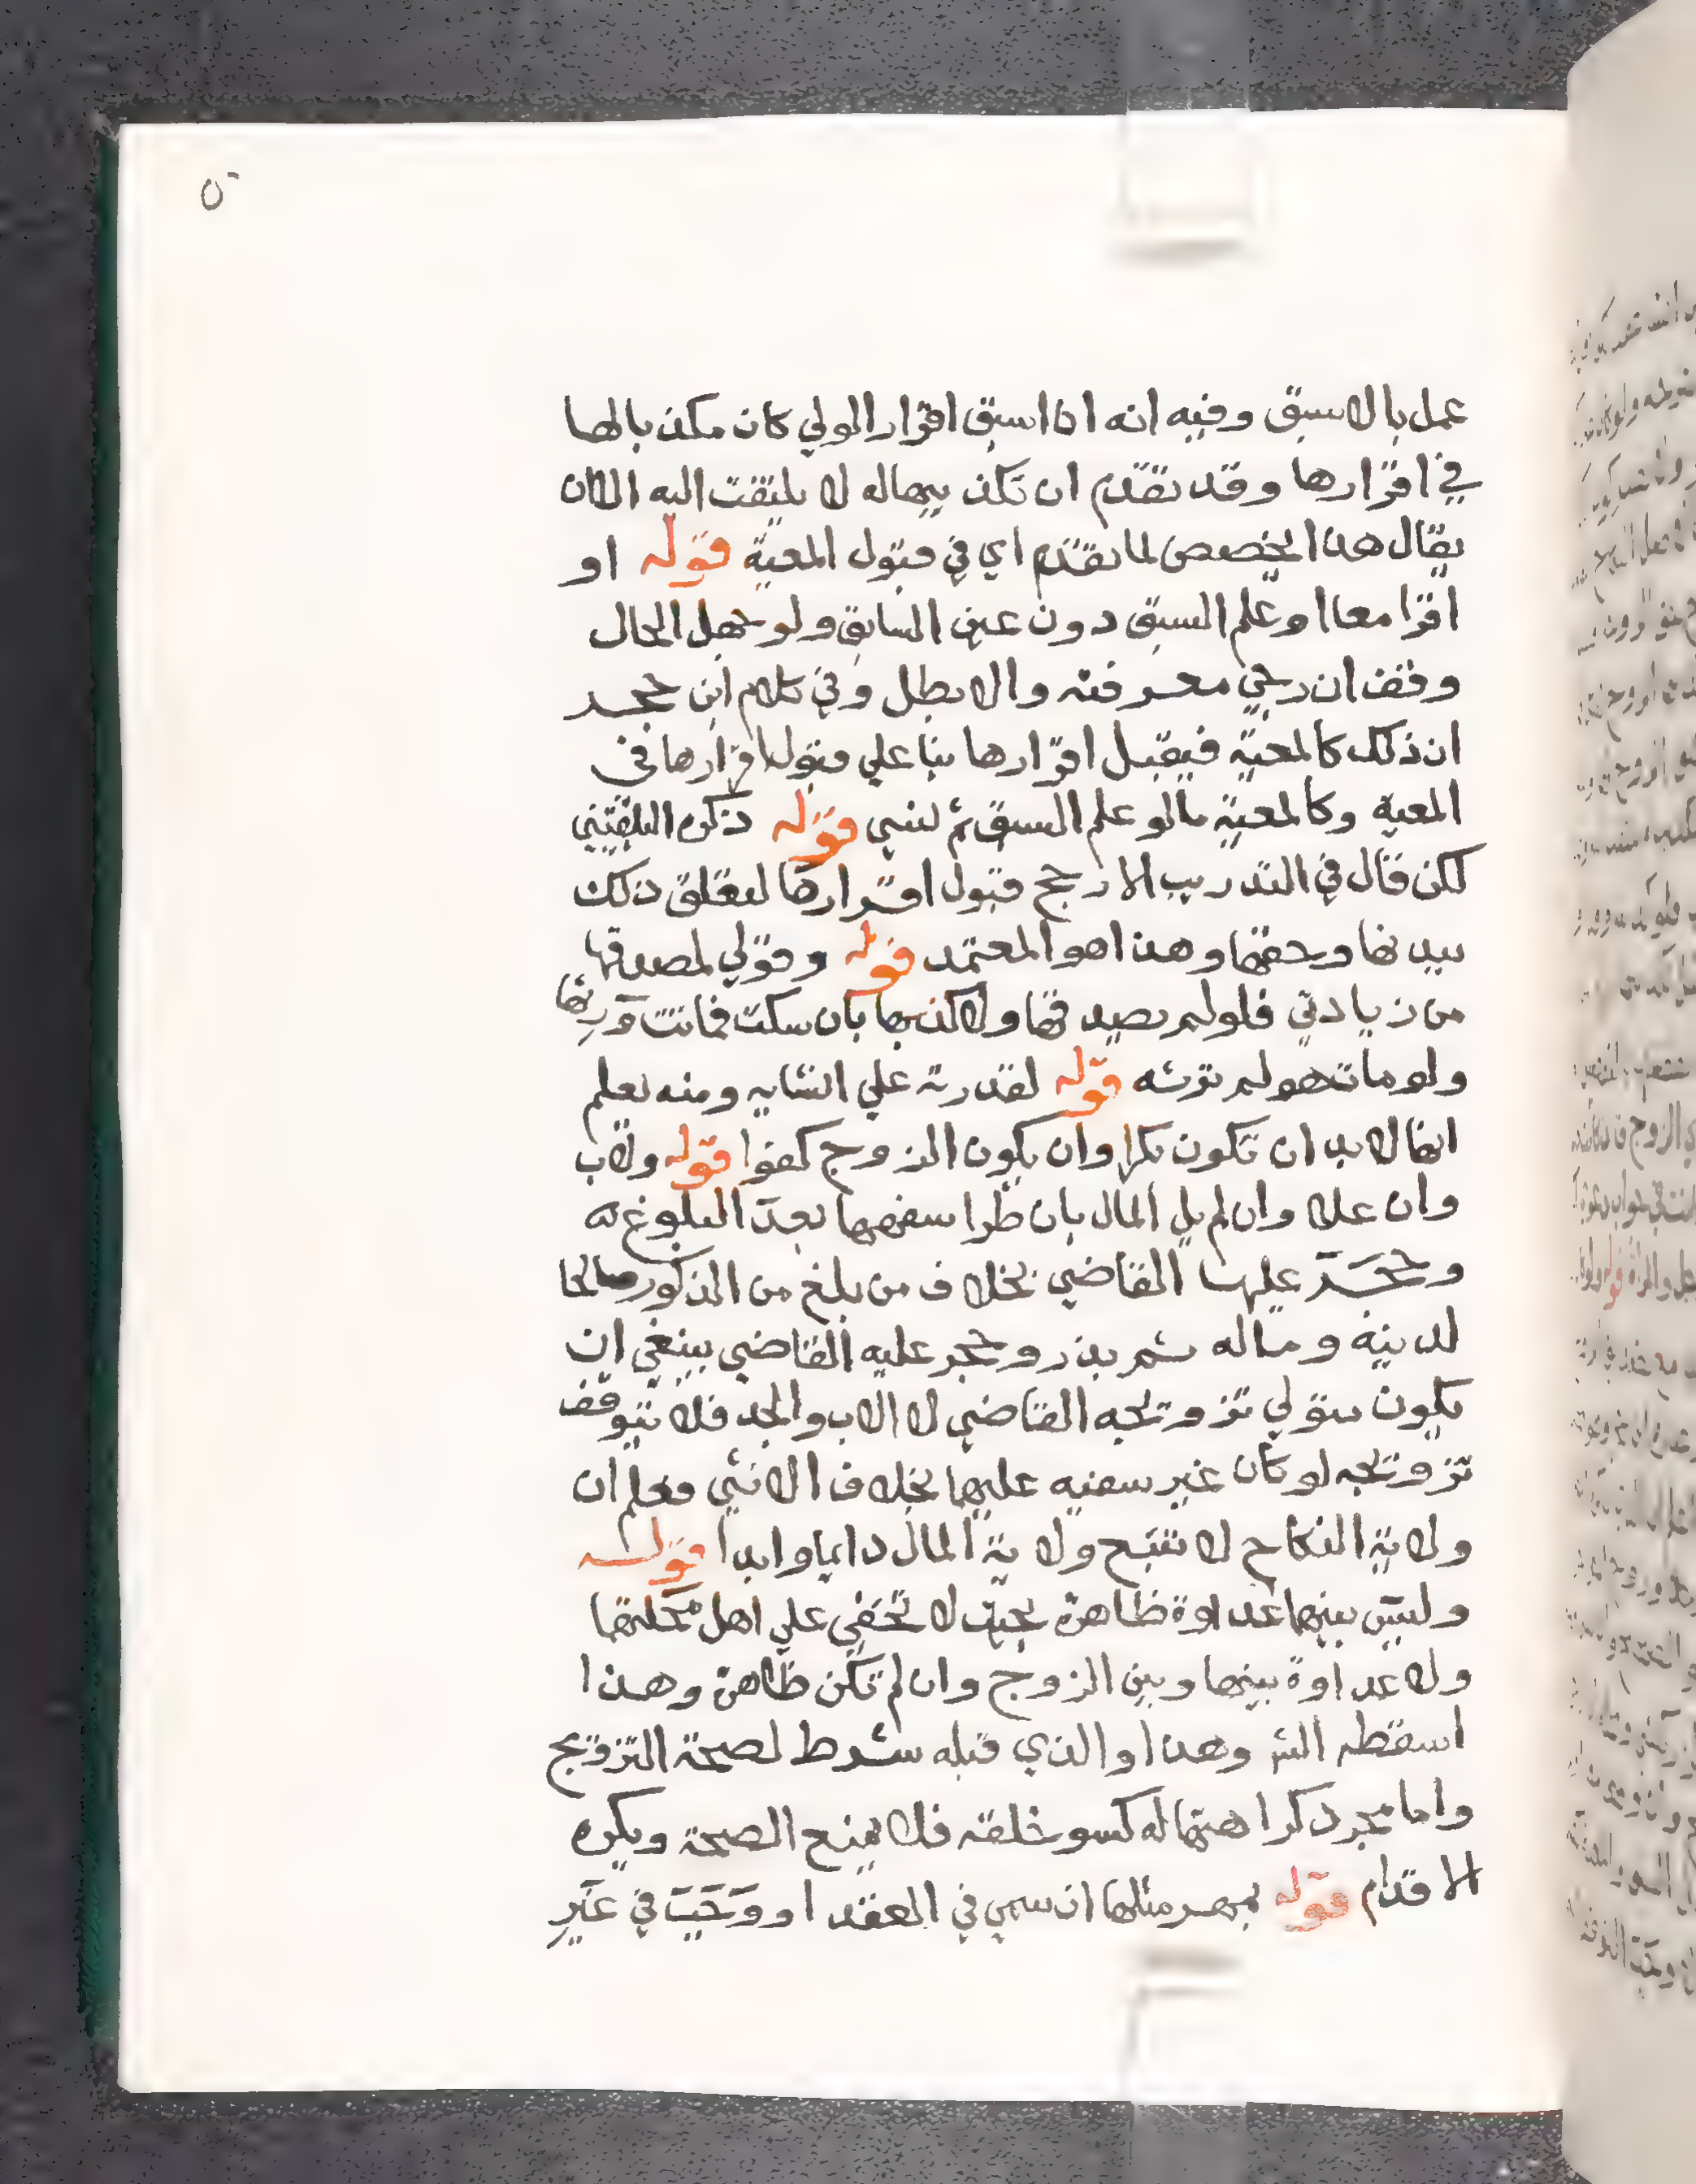 عمل بالاسبق وفيه انه اذا سبق اقرار الولي كان مكذبا لها
في اقرارها وقد تقدم ان تكذيبها له لا يلتفت اليه الا ان
يقال هذا يخصص لما تقدم اي في قبول المعية قوله او
اقرا معا او علم السبق دون عين السابق ولو جهل الحال
وقف ان رجي معرفته والا بطل وفي كلام ابن حجر
ان ذلك كالمعية فيقبل اقرارها بنا علي قبول اقرارها في
المعية وكالمعية ما لو علم السبق ثم نسي قوله ذكره البلقيني
لكن قال في التدريب الارجح قبول اقرارها لتعلق ذلك
ببدنها وحقها وهذا هو المعتمد قوله وقولي لمصدقها
من زيادتي فلو لم يصدقها ولا كذبها بان سكت فماتت ورثها
ولو مات هو لم ترثه قوله لقدرته علي انشايه ومنه يعلم
انها لا بد ان تكون بكرا وان يكون الزوج كفوا قوله ولاب
وان علا وان لم يل المال بان طرا سفهها بعد البلوغ
وحجر عليها القاضي بخلاف من بلغ من الذكور صالحا
لدينه وماله ثم بذر وحجر عليه القاضي ينبغي ان
يكون متولي تزويجه القاضي لا الاب والجد فلا يتوقف
تزويجه لو كان غير سفيه عليها بخلاف الانثي فعلم ان
ولاية النكاح لا تتبع ولاية المال دايما وابدا قوله
وليس بينهما عداوة ظاهرة بحيث لا تخفي علي اهل محلتها
ولا عداوة بينها وبين الزوج وان لم تكن ظاهرة وهذا
اسقطه الش وهذا والذي قبله شرط لصحة التزويج
واما مجرد كراهتها له كسو خلقه فلا يمنع الصحة ويكره
الاقدام قوله بمهر مثلها ان سمي في العقد او وجب في غير